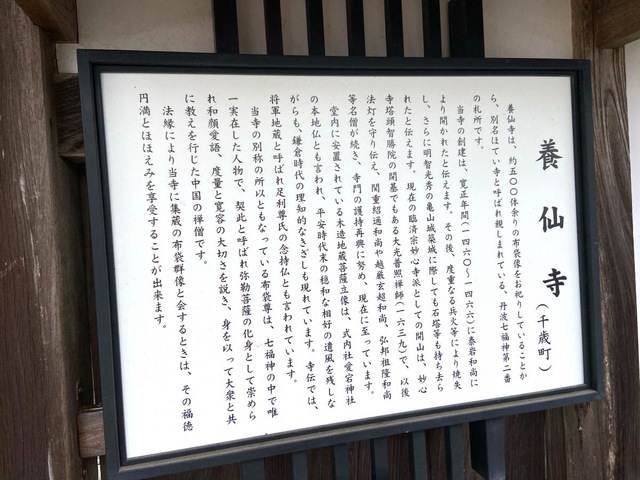 養仙寺（千歳町）
養仙寺は、約五〇〇体余りの布袋像をお祀りしていることか
ら、別名ほてい寺と呼ばれ親しまれている、丹波七福神第二番
の札所です。
当寺の創建は、寛正年間（一四六〇〜一四六六）に泰岩和尚に
より開かれたと伝えます。その後、度重なる兵火等により焼失
し、さらに明智光秀の亀山城築城に際しても石塔等も持ち去ら
れたと伝えます。現在の臨済宗妙心寺派としての開山は、妙心
寺塔頭智勝院の開基でもある大光普照禅師（一六三九）で、以後
法灯を守り伝え、関重紹通和尚や越厳玄超和尚、弘邦祖隆和尚
等名僧が続き、寺門の護持再興に努め、現在に至っています。
堂内に安置されている木造地蔵菩薩立像は、式内社愛宕神社
の本地仏とも言われ、平安時代末の穏和な相好の遺風を残しな
がらも、鎌倉時代の理知的なきざしも現れています。寺伝では、
将軍地蔵と呼ばれ足利尊氏の念持仏とも言われています。
当寺の別称の所以ともなっている布袋尊は、七福神の中で唯
一実在した人物で、契此と呼ばれ弥勒菩薩の化身として崇めら
れ和顔愛語、度量と寛容の大切さを説き、身を以って大衆と共
に教えを行じた中国の禅僧です。
法縁により当寺に集蔵の布袋群像と会するときは、その福徳
円満とほほえみを享受することが出来ます。